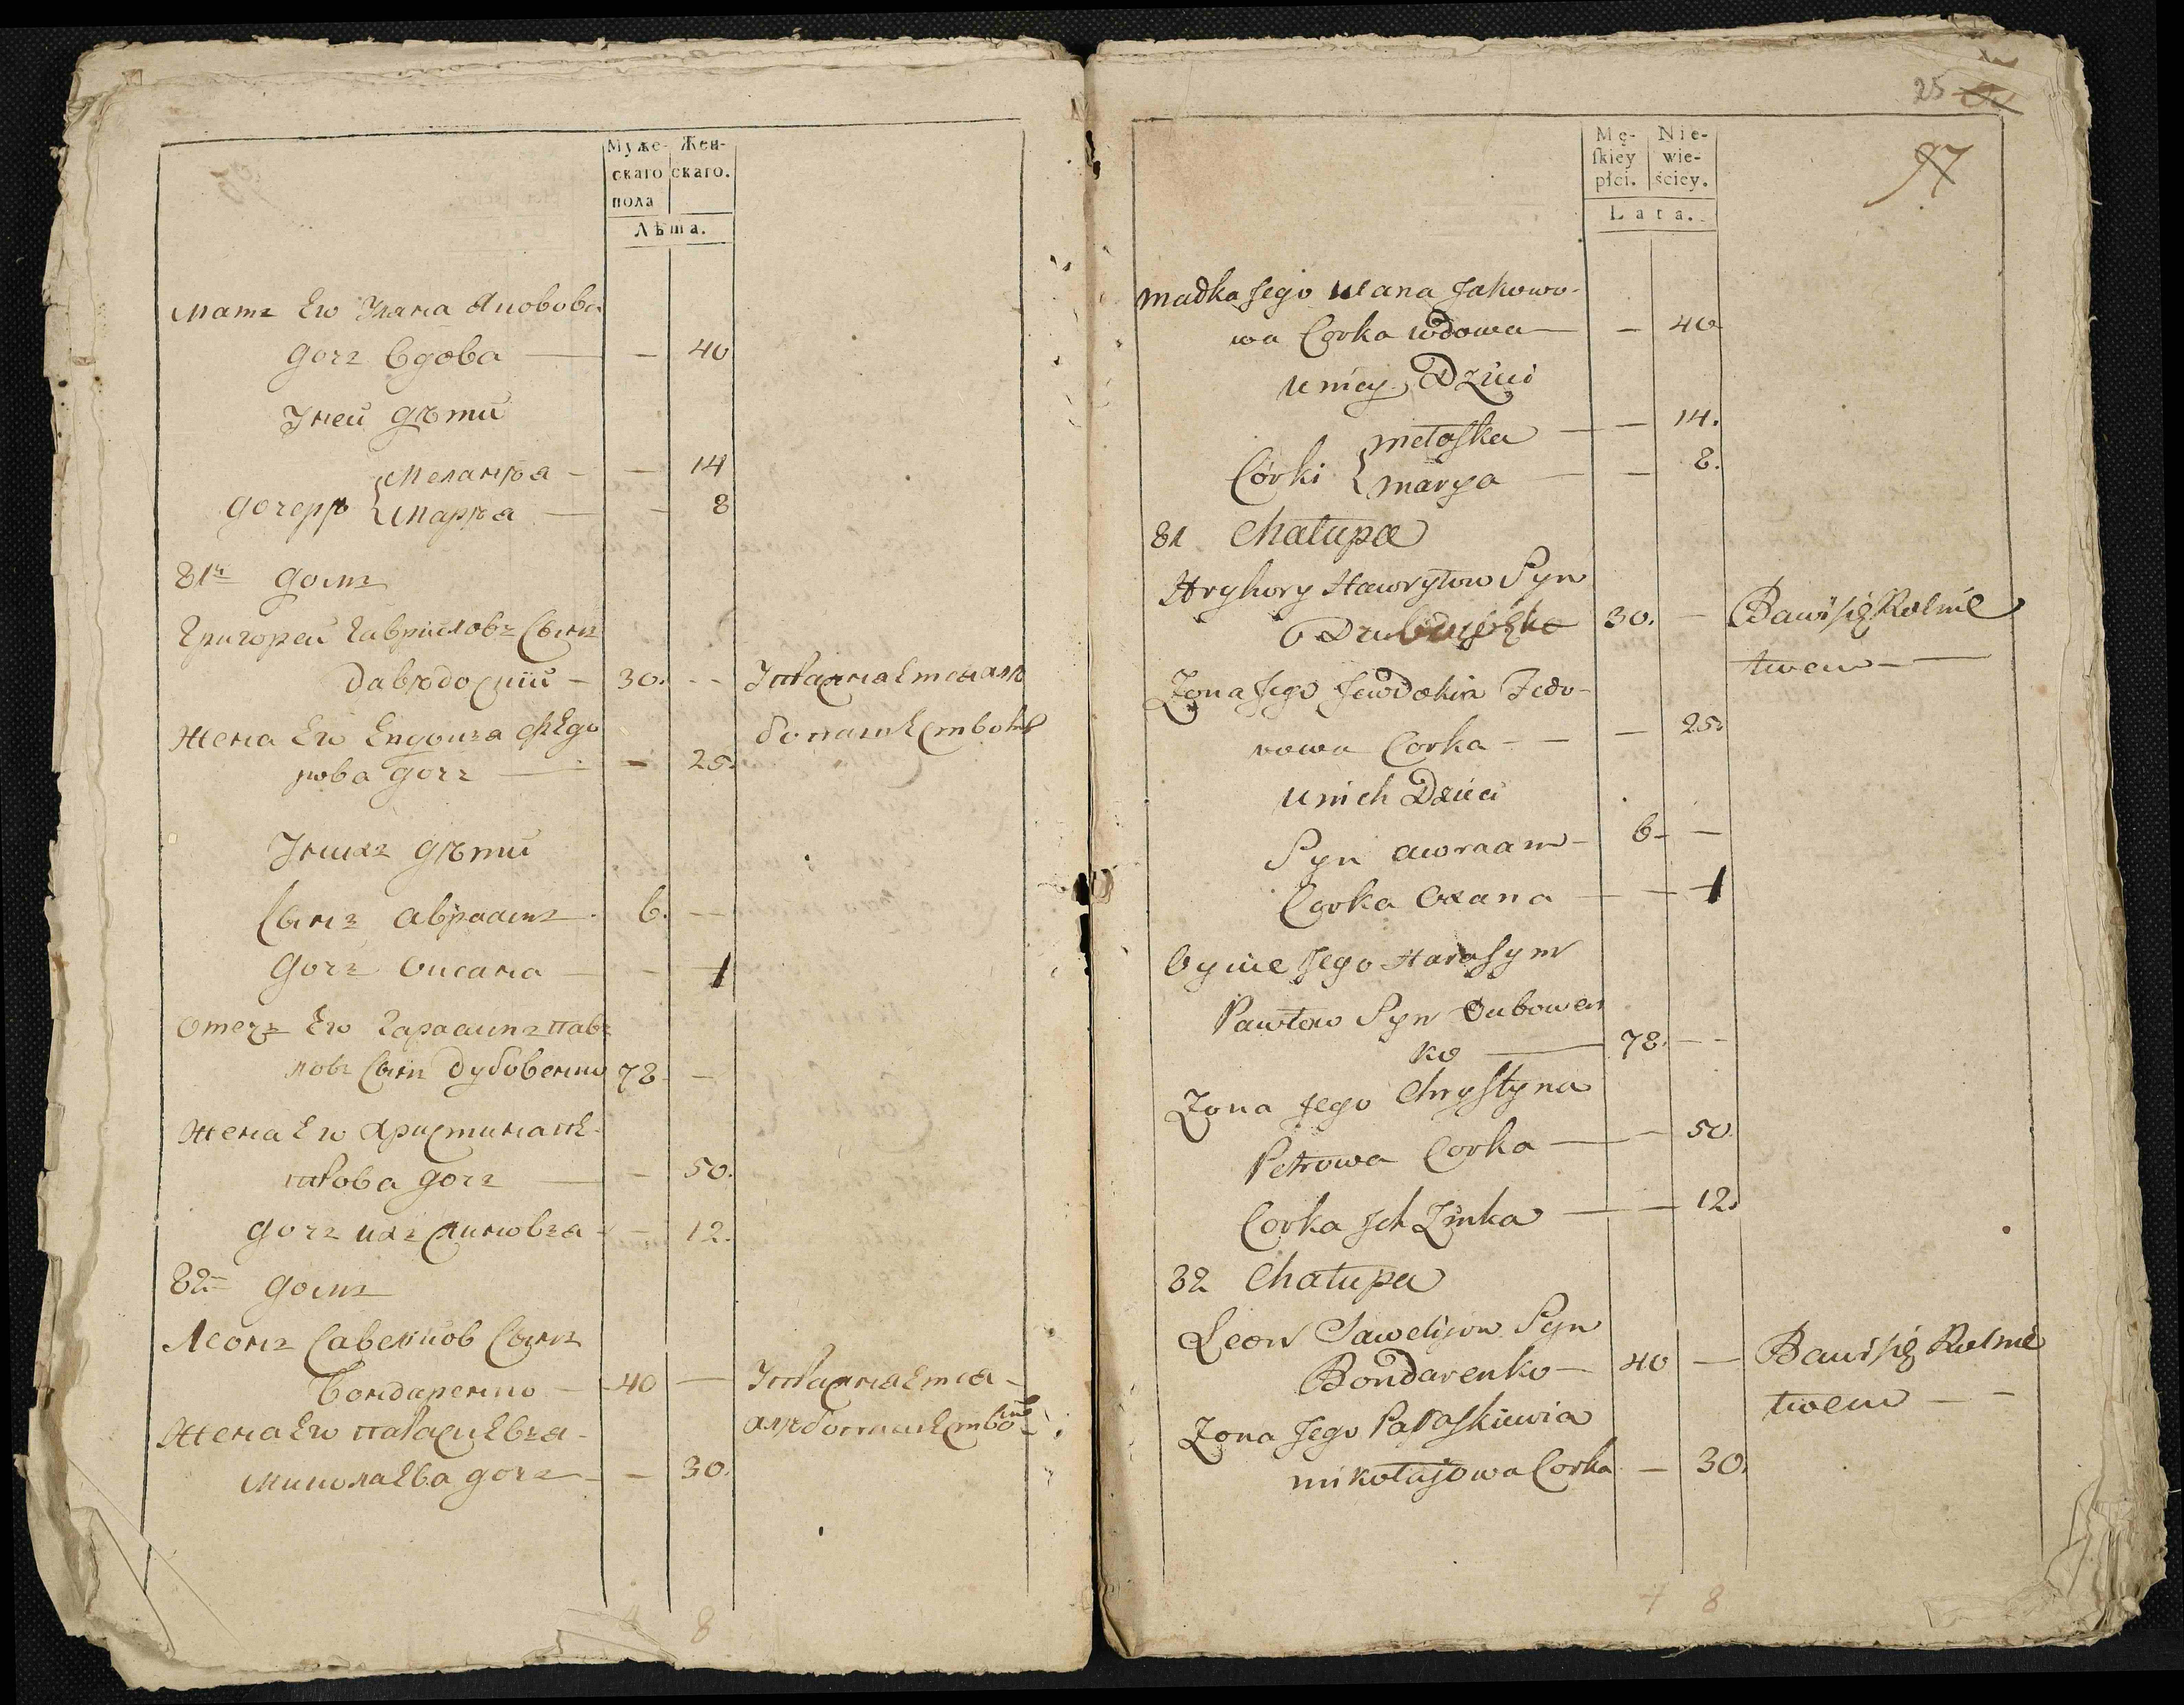 Муже- Жен-
скаго скаго.
пола
Лѣта.
Мать Его Уляна Яковова
дочъ вдова — — 40
Унеи дѣти
Меланія — — 14
дочери { Марія — — 8
81й домъ
Григореи Гавриловъ Сынъ
30. — —
Жена Его Евдокія Федо
рова дочъ — — 25.
Унихъ дѣти
Сынъ Авраамъ 6. —
дочъ Оксана — — 1
Отецъ Его Гарасимъ Пав
ловъ Сынъ Дубовенко 78 —
Жена Его Христина Пе
трова дочъ — — 50.
дочъ ихъ — 12.
82й домъ
Леонъ Савелиов Сынъ
Бондаренко — 40 —
Жена Его Параскевія
Миколаева дочъ — — 30.
8
25
97
Mę- Nie-
skiey wie-
płci. ściey.
Lata.
Madka Jego Ulana Jakowo-
wa Corka wdowa — — 40
U niey Dzieci
Melaszka — — 14.
Córki { Marya — — 8.
81 Chałupa
Hryhory Hawryłow Syn
30. — Bawi się Rolnic
twem —
Zona Jego Jewdokia Fedo-
rowa Corka — — 25.
U nich Dzieci
Syn Awraam — 6 — —
Corka Oxana — — 1
Oyciec Jego Harasym
Pawłow Syn Dubowen
ko — 78. — —
Zona Jego Chrystyna
Petrowa Corka — — 50.
Corka Ich Zinka — — 12.
82 Chałupa
Leon Sawelijow Syn
Bondarenko — 40 — Bawi się Rolnic
twem — —
Zona Jego Paraskiewia
Mikołajowa Corka — 30.
7 8